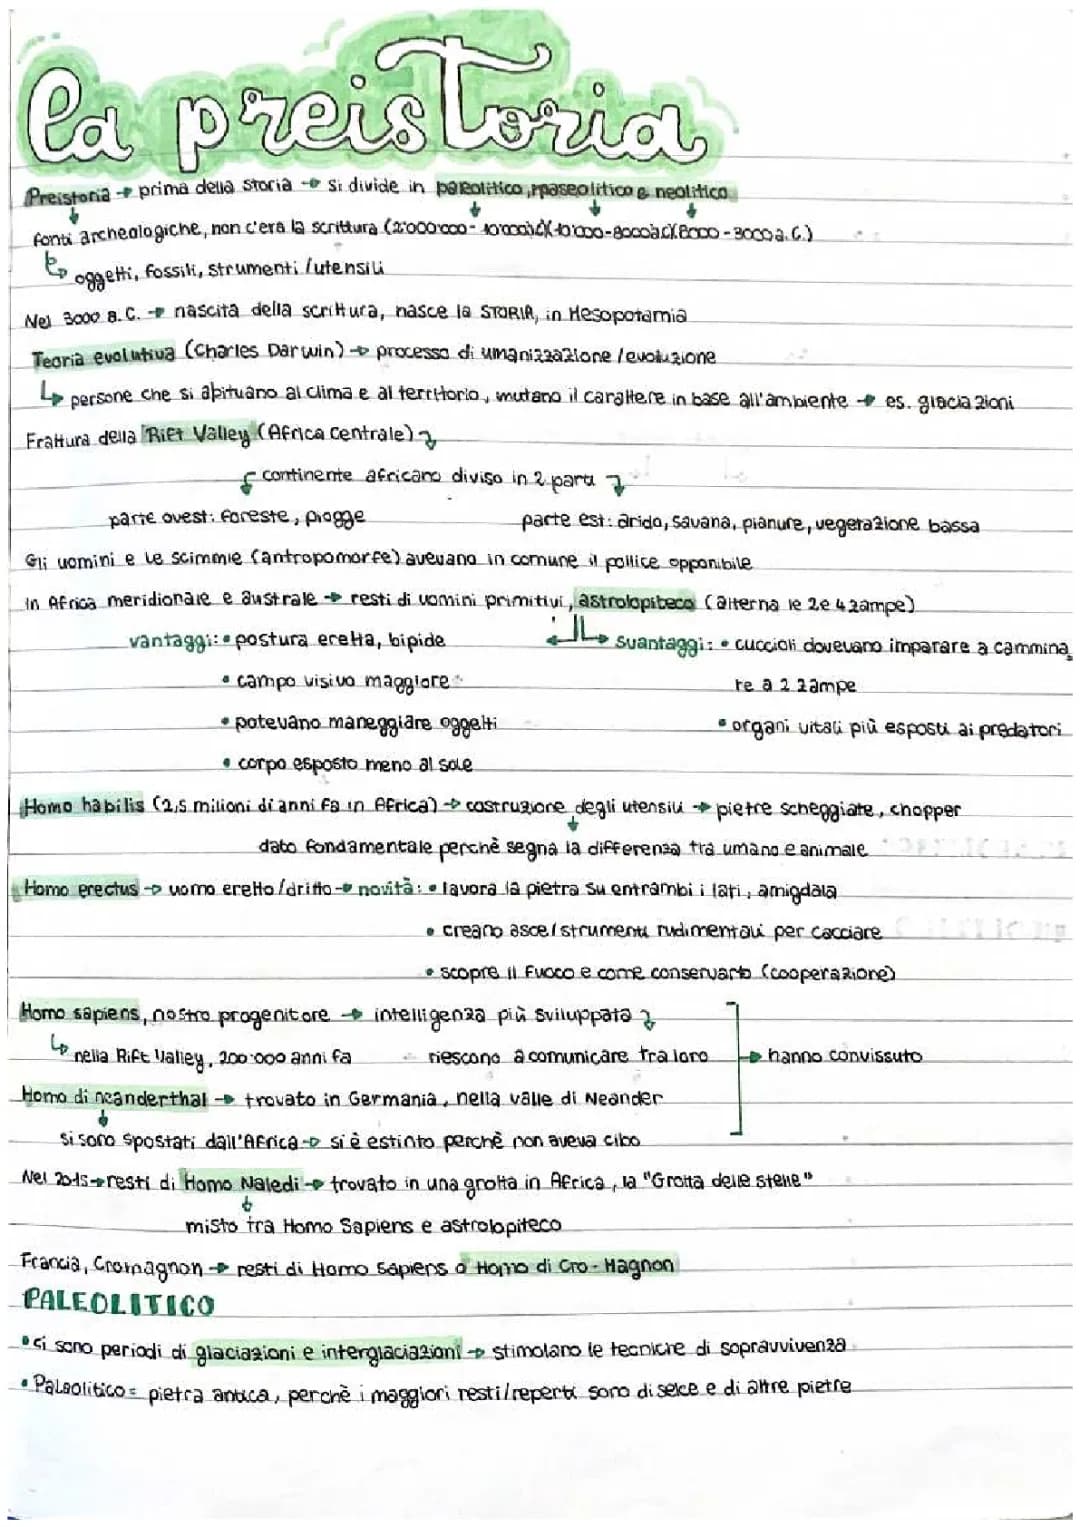 la preistoria
Preistoria → prima della storia → si divide in paleolitico, mpaseolitico e neolitico
fonti archeologiche, non c'era la scrittura (2'000'000 - 10'000a.C)(10'000-8000a.C)(8000 - 3000 a.C.)
↳ oggetti, fossili, strumenti/utensili
Nel 3000 a.C. → nascita della scrittura, nasce la STORIA, in Mesopotamia
Teoria evolutiva (Charles Darwin) → processo di umanizzazione/evoluzione
↳ persone che si abituano al clima e al territorio, mutano il carattere in base all'ambiente → es. glaciazioni
Frattura della Rift Valley (Africa Centrale)
continente africano diviso in 2 parti
parte ovest: foreste, piogge parte est: arido, savana, pianure, vegetazione bassa
Gli uomini e le scimmie (antropomorfe) avevano in comune il pollice opponibile
In Africa meridionale e australe → resti di uomini primitivi, astrolopiteco (alterna le 2 e 4 zampe)
vantaggi: • postura eretta, bipide svantaggi: • cuccioli dovevano imparare a cammina
• campo visivo maggiore re a 2 zampe
• potevano maneggiare oggetti • organi vitali più esposti ai predatori
• corpo esposto meno al sole
Homo habilis (2,5 milioni di anni fa in Africa) → costruzione degli utensili → pietre scheggiate, chopper
dato fondamentale perchè segna la differenza tra umano e animale
Homo erectus → uomo eretto/dritto → novità: • lavora la pietra su entrambi i lati, amigdala
• creano asce/strumenti rudimentali per cacciare
• scopre il fuoco e come conservarlo (cooperazione)
Homo sapiens, nostro progenitore → intelligenza più sviluppata
↳ nella Rift Valley, 200'000 anni fa riescono a comunicare tra loro → hanno convissuto
Homo di neanderthal → trovato in Germania, nella valle di Neander
si sono spostati dall'Africa → si è estinto perchè non aveva cibo
Nel 2015 → resti di Homo Naledi → trovato in una grotta in Africa, la "Grotta delle stelle"
misto tra Homo Sapiens e astrolopiteco
Francia, Cromagnon → resti di Homo sapiens o Homo di Cro-Magnon
PALEOLITICO
• ci sono periodi di glaciazioni e interglaciazioni → stimolano le tecniche di sopravvivenza
• Paleolitico = pietra antica, perchè i maggiori resti/reperti sono di selce e di altre pietre